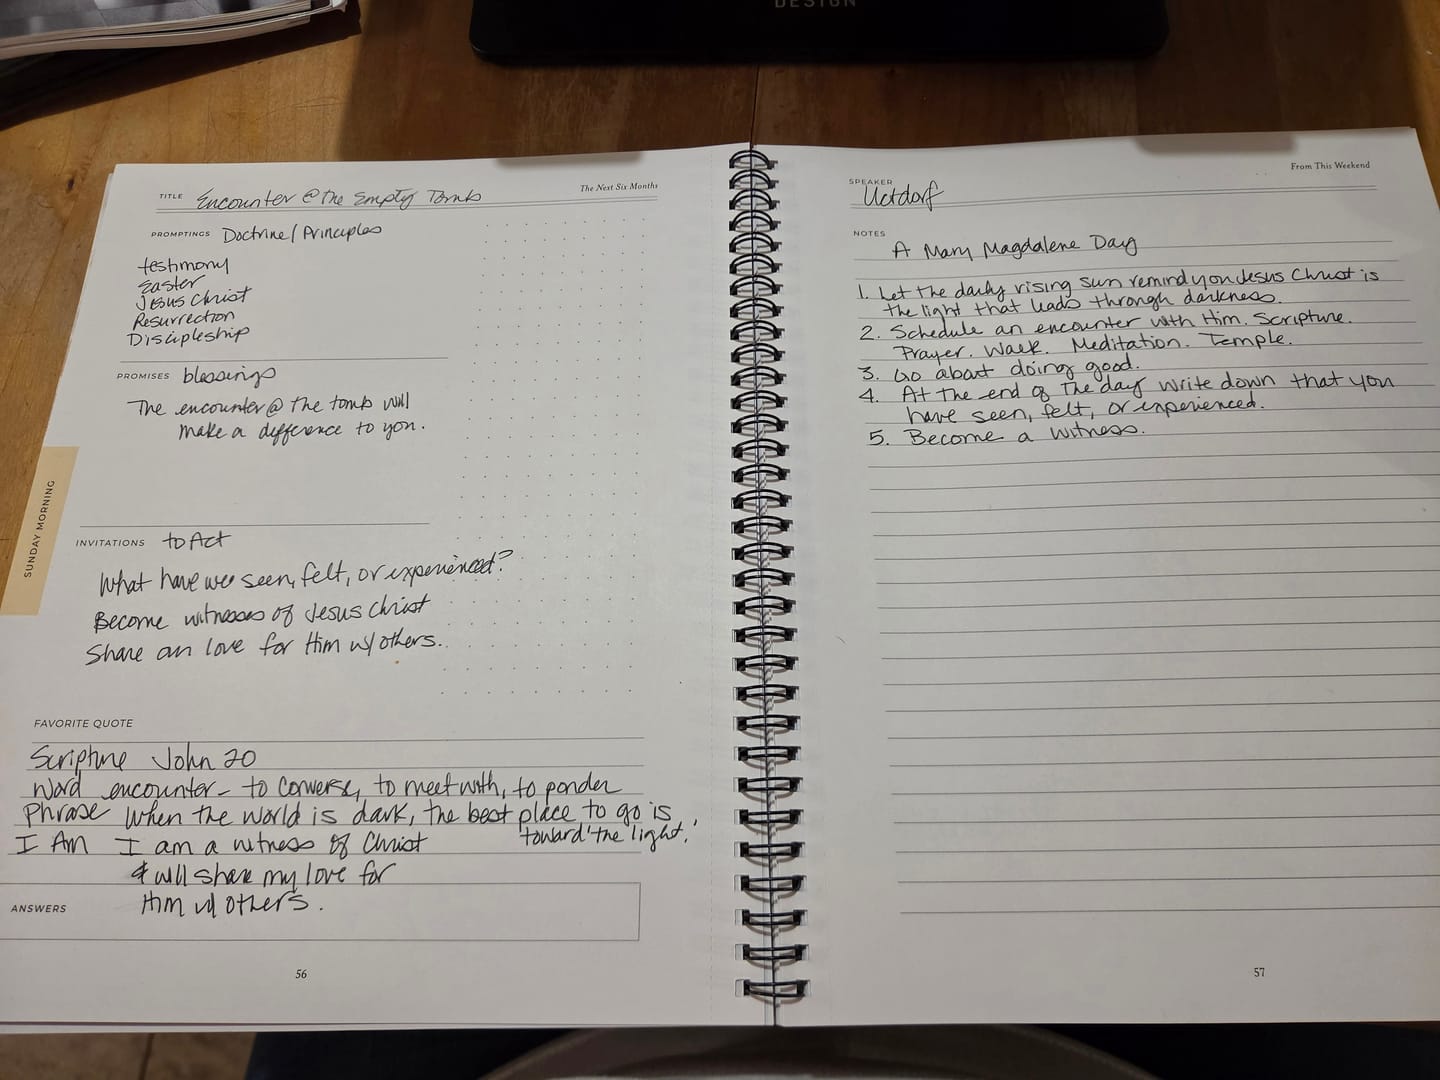 DESIGN
The Next Six Months
TITLE Encounter @ the Empty Tomb
PROMPTINGS Doctrine/Principles
testimony
Easter
Jesus Christ
Resurrection
Discipleship
PROMISES blessings
The encounter @ the tomb will
make a difference to you.
SUNDAY MORNING
INVITATIONS to Act
What have we seen, felt, or experienced?
Become witnesses of Jesus Christ
Share our love for Him w/others.
FAVORITE QUOTE
Scripture John 20
Word encounter - to converse, to meet with, to ponder
Phrase When the world is dark, the best place to go is
toward "the light."
I Am I am a witness of Christ
& will share my love for
Him w/ others.
ANSWERS
56
From This Weekend
SPEAKER
Uctdorf
NOTES
A Mary Magdalene Day
1. Let the daily rising sun remind you Jesus Christ is
the light that leads through darkness.
2. Schedule an encounter with Him. Scripture.
Prayer. Walk. Meditation. Temple.
3. Go about doing good.
4. At the end of the day write down that you
have seen, felt, or experienced.
5. Become a witness.
57